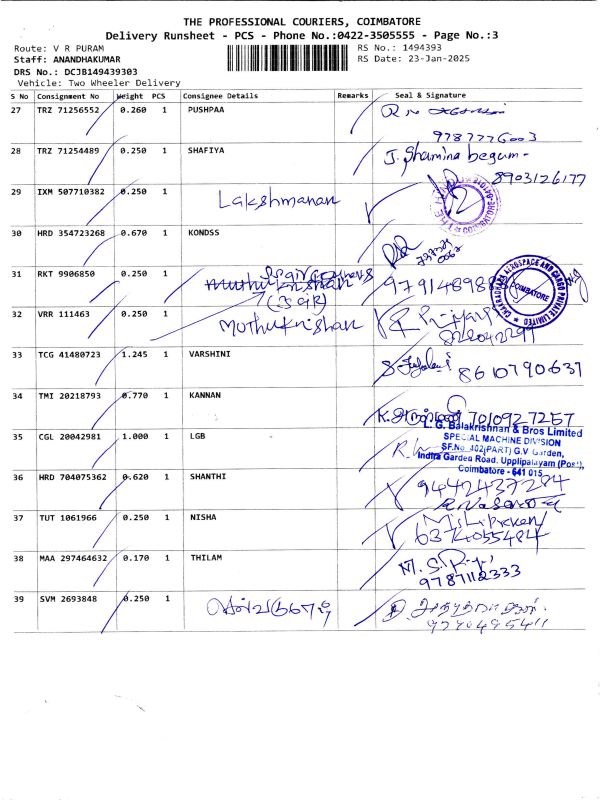 THE PROFESSIONAL COURIERS, COIMBATORE
Delivery Runsheet - PCS - Phone No.:0422-3505555 - Page No.:3
Route: V R PURAM RS No.: 1494393
Staff: ANANDHAKUMAR RS Date: 23-Jan-2025
DRS No.: DCJB149439303
Vehicle: Two Wheeler Delivery
S No Consignment No Weight PCS Consignee Details Remarks Seal & Signature
27 TRZ 71256552 0.260 1 PUSHPAA
9787776003
28 TRZ 71254489 0.250 1 SHAFIYA J. Shamina begum-
8903126177
29 IXM 507710382 0.250 1 Lakshmanan
30 HRD 354723268 0.670 1 KONDSS
31 RKT 9906850 0.250 1 Muthukrishan
CHAKRADHARA AEROSPACE AND CARGO PRIVATE LIMITED
COIMBATORE
32 VRR 111463 0.250 1 Mothukrishan
33 TCG 41480723 1.245 1 VARSHINI 8610790637
34 TMI 20218793 0.770 1 KANNAN 7010927257
35 CGL 20042981 1.000 1 LGB L. G. Balakrishnan & Bros Limited
SPECIAL MACHINE DIVISION
SF.No. 402(PART) G.V. Garden,
Indira Garden Road, Upplipalayam (Post),
Coimbatore - 641 015
36 HRD 704075362 0.620 1 SHANTHI 9442437284
37 TUT 1061966 0.250 1 NISHA
6374055484
38 MAA 297464632 0.170 1 THILAM
9787112333
39 SVM 2693848 0.250 1